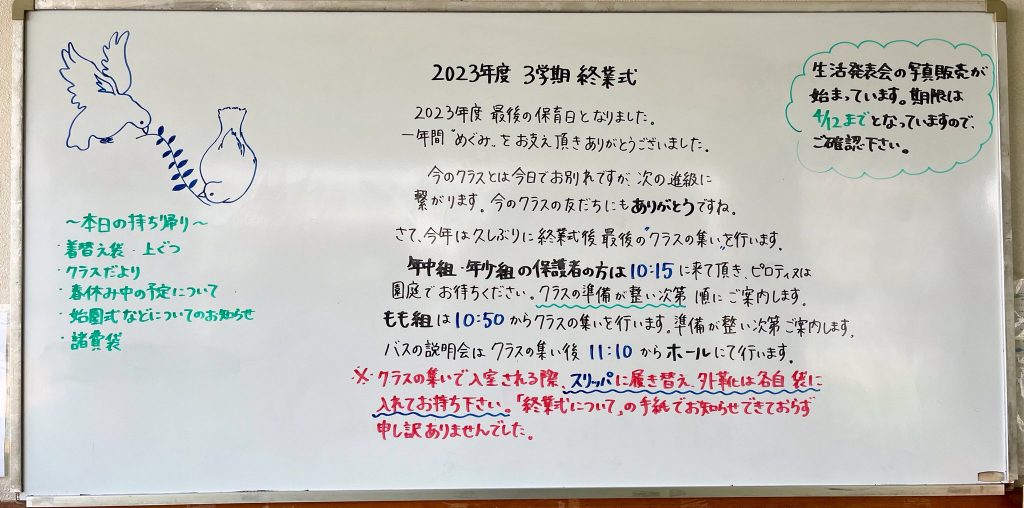 2023年度 3学期 終業式
2023年度 最後の保育日となりました。
一年間"めぐみ"をお支え頂きありがとうございました。
今のクラスとは今日でお別れですが、次の進級に
繋がります。今のクラスの友だちにもありがとうですね。
さて、今年は久しぶりに終業式後 最後の"クラスの集い"を行います。
年中組・年少組の保護者の方は10:15に来て頂き、ピロティ又は
園庭でお待ちください。クラスの準備が整い次第 順にご案内します。
もも組は10:50からクラスの集いを行います。準備が整い次第ご案内します。
バスの説明会はクラスの集い後 11:10からホールにて行います。
※クラスの集いで入室される際、スリッパに履き替え、外靴は各自 袋に
入れてお持ち下さい。「終業式について」の手紙でお知らせできておらず
申し訳ありませんでした。
生活発表会の写真販売が
始まっています。期限は
4/12までとなっていますので、
ご確認下さい。
〜本日の持ち帰り〜
・着替え袋・上ぐつ
・クラスだより
・春休み中の予定について
・始園式などについてのお知らせ
・諸費袋